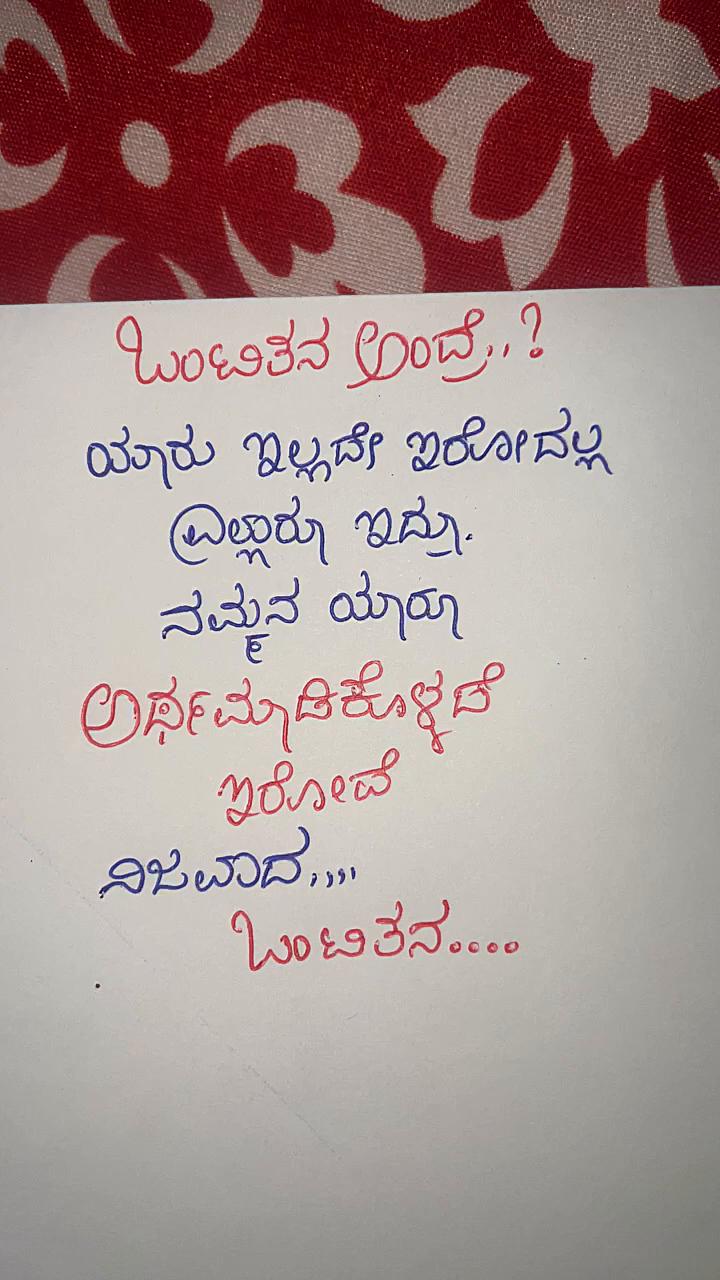 ಒಂಟಿತನ ಅಂದ್ರೆ..?
ಯಾರು ಇಲ್ಲದೇ ಇರೋದಲ್ಲ
ಎಲ್ಲಾರು ಇದ್ರು.
ನಮ್ಮನ ಯಾರೂ
ಅರ್ಥಮಾಡಿಕೊಳ್ಳದೆ
ಇರೋದೆ
ನಿಜವಾದ,,,,
ಒಂಟಿತನ....